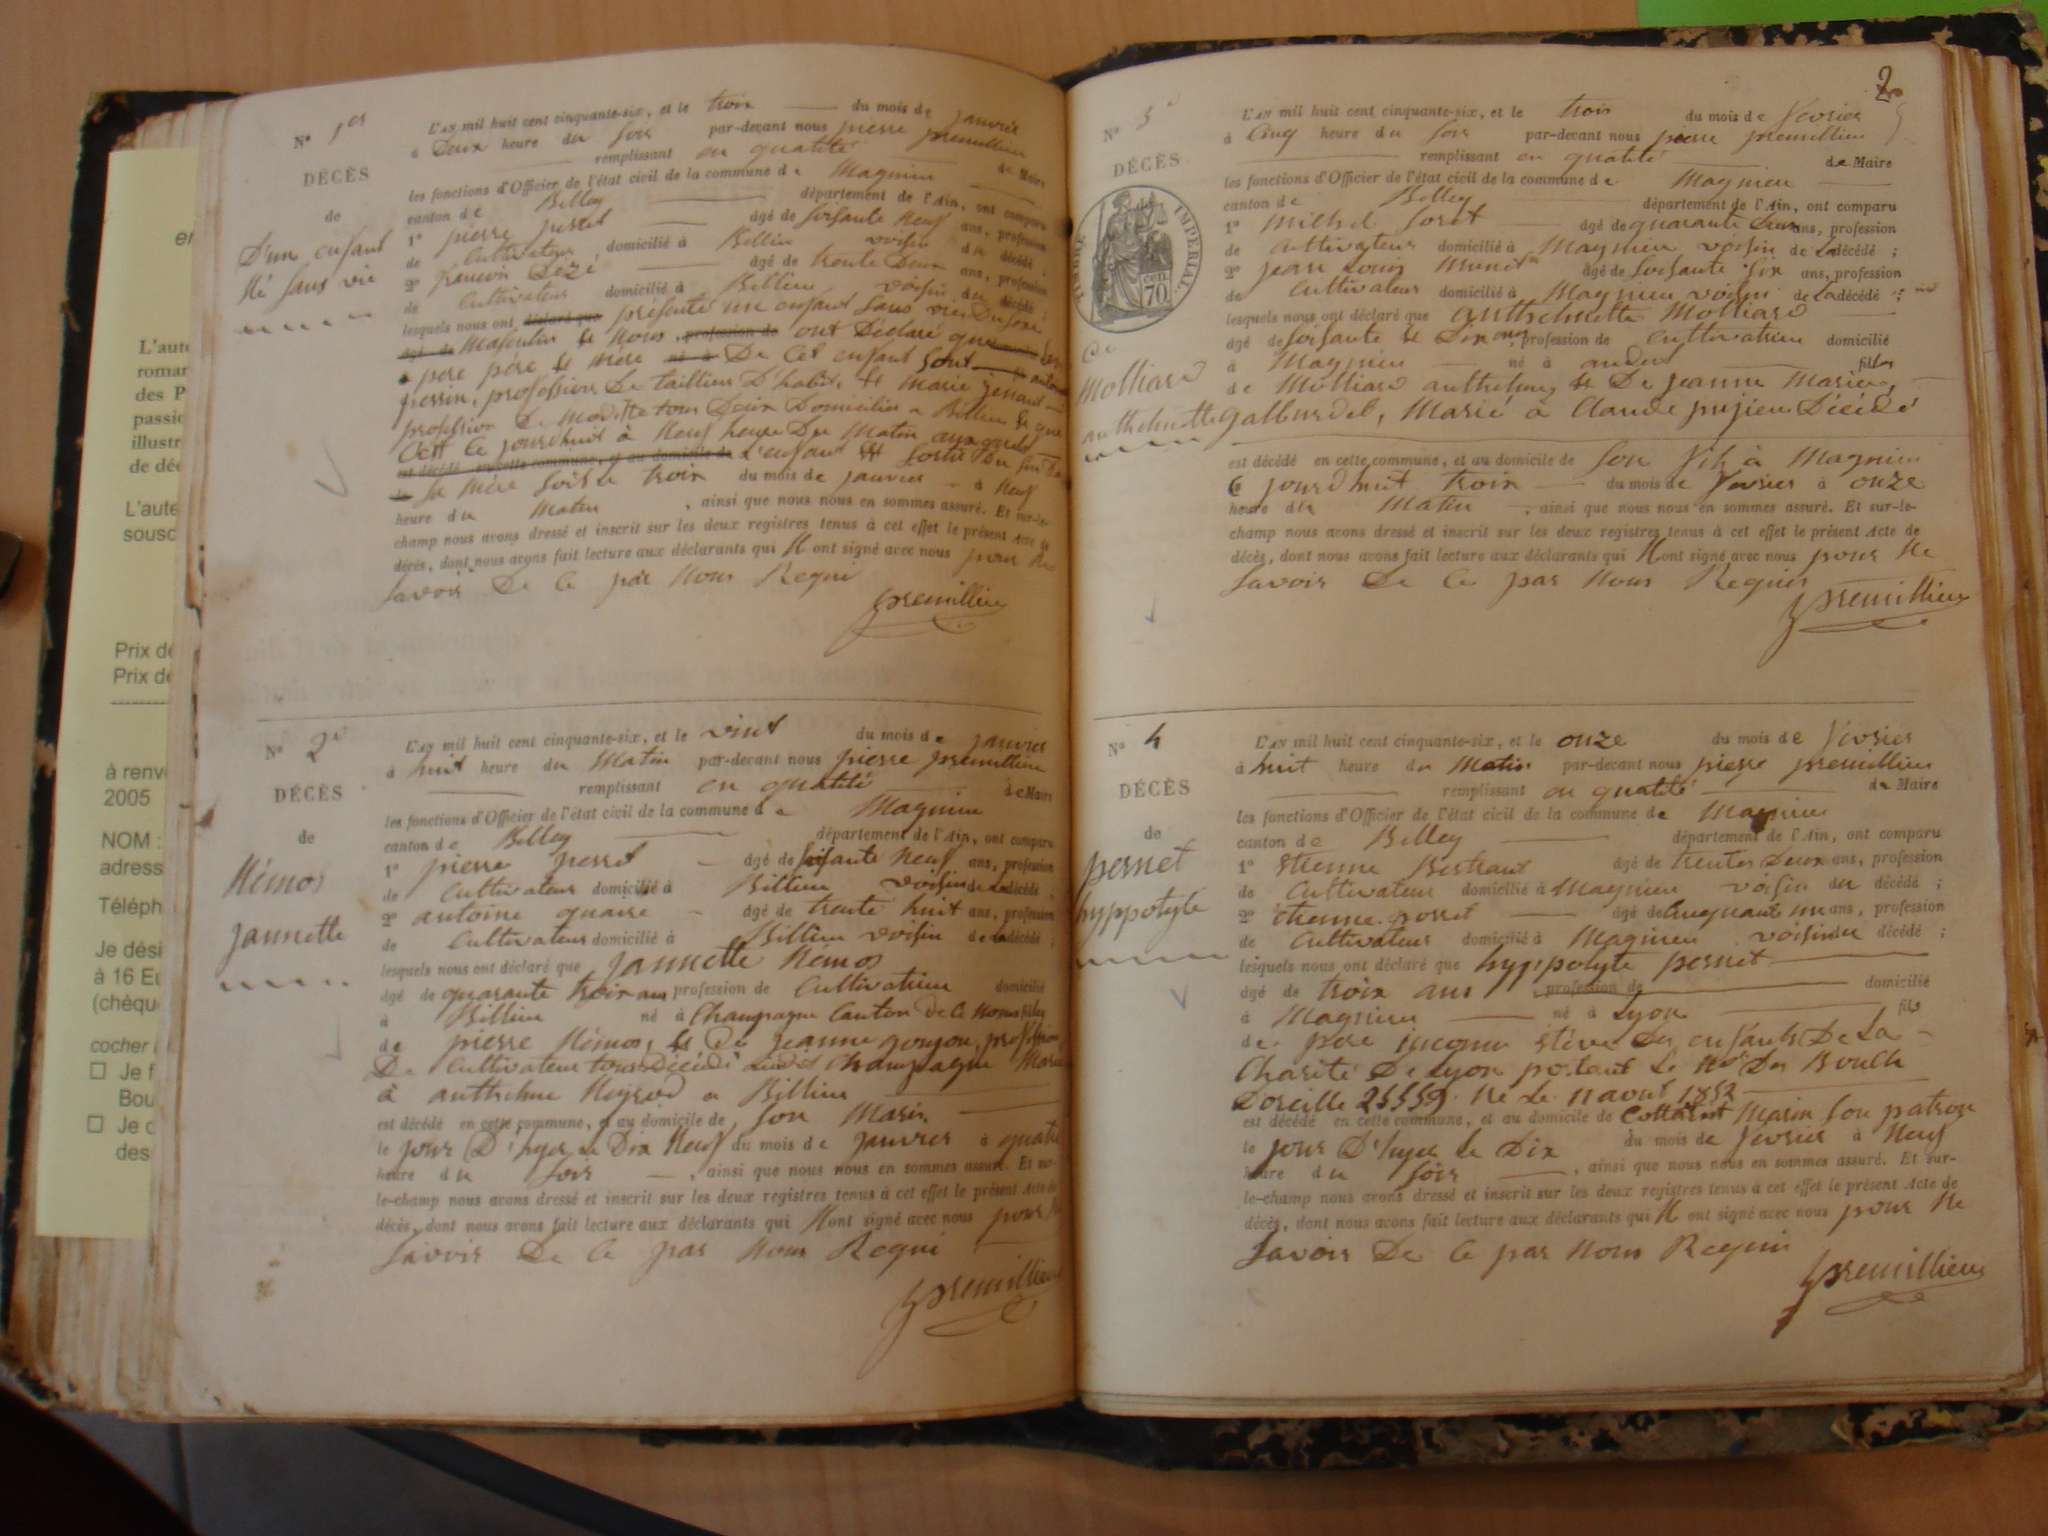 N° 1er
DÉCÈS
de
D'un enfant
Né Sans vie
L'AN mil huit cent cinquante-six, et le trois du mois de janvier
à Deux heure du Soir par-devant nous pierre premillieu
remplissant en qualité de Maire
les fonctions d'Officier de l'état civil de la commune de Magnieu
canton de Belley département de l'Ain, ont comparu
1° pierre perret âgé de Soisante Neuf ans, profession
de Cultivateur, domicilié à Billieu voisin du décédé ;
2° francois âgé de trente Deux ans, profession
de Cultivateur domicilié à Billieu voisin du décédé ;
lesquels nous ont déclaré que présenté un enfant Sans vie Du Sexe
âgé de Masculin & Nous profession de ont Déclaré que
père & mère né à De Cet enfant Sont
perrin, profession De tailleur D'habit, & Marie
profession De Modiste tous Deux Domiciliés a Billieu & que
C'est ce jourd'huit à Neuf heure Du Matin
est décédé en cette commune, et au domicile de L'enfant est Sortie Du Sin De
Sa Mère Soit le troix du mois de janvier à Neuf
heure du Matin, ainsi que nous nous en sommes assuré. Et sur-le-
champ nous avons dressé et inscrit sur les deux registres tenus à cet effet le présent Acte de
décès, dont nous avons fait lecture aux déclarants qui N ont signé avec nous pour Ne
Savoir De Ce par Nous Requi
premillieu
N° 2e
DÉCÈS
de
Némos
Jannette
L'AN mil huit cent cinquante-six, et le vint du mois de janvier
à huit heure du Matin par-devant nous pierre premillieu
remplissant en qualité de Maire
les fonctions d'Officier de l'état civil de la commune de Magnieu
canton de Belley département de l'Ain, ont comparu
1° pierre perret âgé de Soisante Neuf ans, profession
de Cultivateur domicilié à Billieu voisin de La décédé ;
2° antoine âgé de trente huit ans, profession
de Cultivateur domicilié à Billieu voisin de La décédé ;
lesquels nous ont déclaré que Jannette Nemos
âgé de quarante troix ans profession de Cultivatrice domicilié
à Billieu né à Champagne Canton de Ce Nom fille
de pierre Némos, & De Jeanne goujon, profession
De Cultivateur tous Décédé audit Champagne Marié
à anthelme a Billieu
est décédé en cette commune, et au domicile de Son Marin
le jour D'hyer Le Dix Neuf du mois de janvier à quatre
heure du Soir, ainsi que nous nous en sommes assuré. Et sur-
le-champ nous avons dressé et inscrit sur les deux registres tenus à cet effet le présent Acte de
décès, dont nous avons fait lecture aux déclarants qui N ont signé avec nous pour Ne
Savoir De Ce par Nous Requi
premillieu
2
N° 3e
DÉCÈS
TIMBRE IMPERIAL
70 cen
de
Molliard
anthelmette
L'AN mil huit cent cinquante-six, et le trois du mois de Février
à Cinq heure du Soir par-devant nous pierre premillieu
remplissant en qualité de Maire
les fonctions d'Officier de l'état civil de la commune de Magnieu
canton de Belley département de l'Ain, ont comparu
1° Michel âgé de quarante Deux ans, profession
de Cultivateur domicilié à Magnieu voisin de La décédé ;
2° Jean Louis âgé de Soisante Six ans, profession
de Cultivateur domicilié à Magnieu voisin de La décédé ;
lesquels nous ont déclaré que anthelmette Molliard
âgé de Soisante & Dix ans profession de Cultivatrice domicilié
à Magnieu né à andert fille
de Molliard anthelme, & De Jeanne Marie,
, Marié à Claude pujieu Décédé
est décédé en cette commune, et au domicile de Son fils à Magnieu
le jourd'huit troix du mois de Février à onze
heure du Matin, ainsi que nous nous en sommes assuré. Et sur-le-
champ nous avons dressé et inscrit sur les deux registres tenus à cet effet le présent Acte de
décès, dont nous avons fait lecture aux déclarants qui N ont signé avec nous pour Ne
Savoir De Ce par Nous Requis
premillieu
N° 4
DÉCÈS
de
pernet
hyppolyte
L'AN mil huit cent cinquante-six, et le onze du mois de Février
à huit heure du Matin par-devant nous pierre premillieu
remplissant en qualité de Maire
les fonctions d'Officier de l'état civil de la commune de Magnieu
canton de Belley département de l'Ain, ont comparu
1° Etienne Bertrand âgé de trente Deux ans, profession
de Cultivateur domicilié à Magnieu voisin du décédé ;
2° étienne âgé de Cinquante un ans, profession
de Cultivateur domicilié à Magnieu voisin du décédé ;
lesquels nous ont déclaré que hyppolyte pernet
âgé de troix ans profession de domicilié
à Magnieu né à Lyon fils
de père inconnu élève Des enfants De La
Charité De Lyon portant Le No Des Boucle
Doreille 25559. Né Le 11 avril 1852
est décédé en cette commune, et au domicile de Marin Son patron
le jour D'hyer Le Dix du mois de Février à Neuf
heure du Soir, ainsi que nous nous en sommes assuré. Et sur-
le-champ nous avons dressé et inscrit sur les deux registres tenus à cet effet le présent Acte de
décès, dont nous avons fait lecture aux déclarants qui N ont signé avec nous pour Ne
Savoir De Ce par Nous Requi
premillieu
L'aute
roman
des P
passio
illustr
de déc
L'aute
sousc
Prix de
Prix de
à renv
2005
NOM :
adress
Téléph
Je dési
à 16 Eu
(chèqu
cocher
Je f
Bou
Je d
des